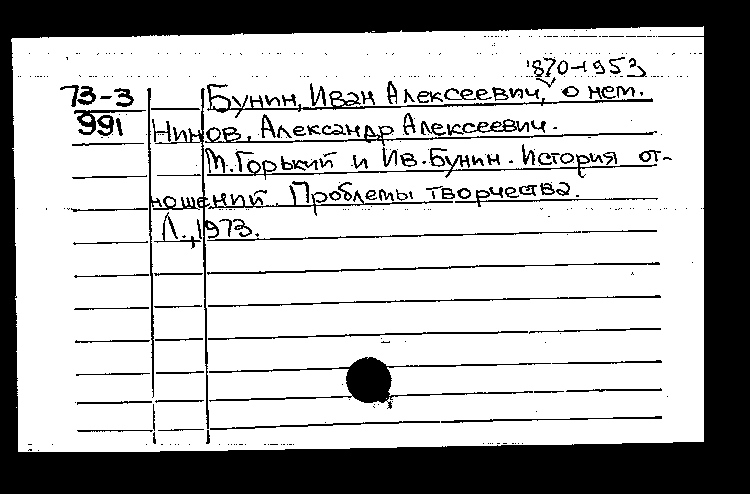 1870-1953
73-3 Бунин, Иван Алексеевич, о нем.
991 Нинов, Александр Алексеевич.
М. Горький и Ив. Бунин. История от-
ношений. Проблемы творчества.
Л., 1973.